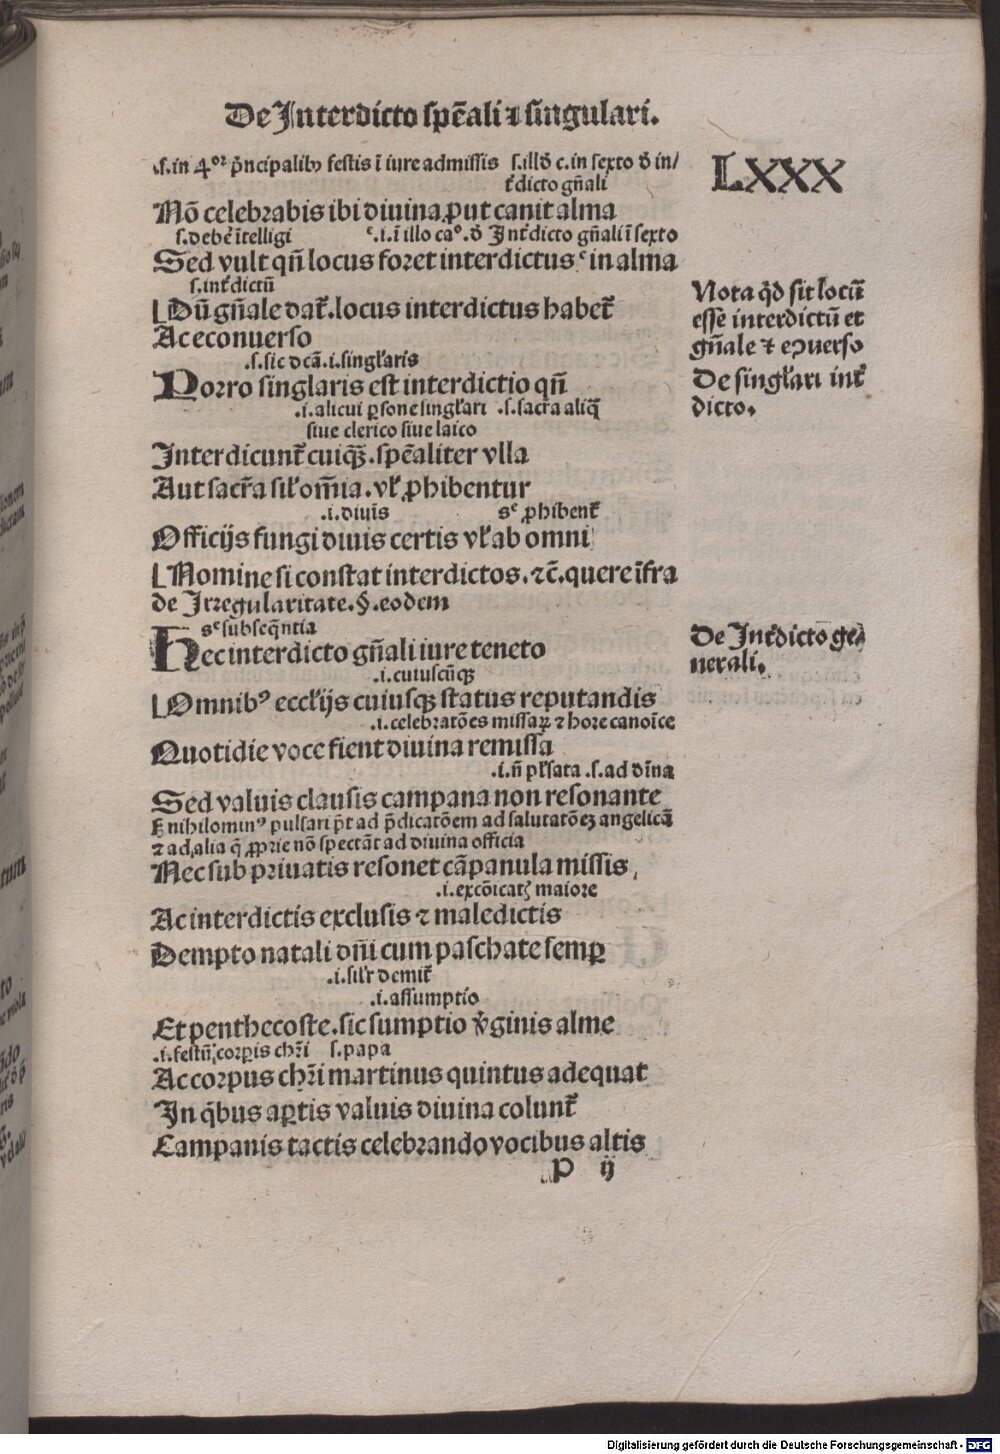 De Interdicto spēali ⁊ singulari.
LXXX
.s.in 4ᵒʳ p̄ncipalibꝰ festis ī iure admissis s.illō c.in sexto ō in/
ṫdicto gn̄ali
Nō celebrabis ibi diuina ꝓut canit alma
s.debēt ītelligi ᶜ.i.ī illo caᵒ.ō Inṫdicto gn̄ali ī sexto
Sed vult qn̄ locus foret interdictus ᶜ in alma
s.inṫdictū
Dū gn̄ale daṫ.locus interdictus habeṫ
Ac econuerso
.s.sic dc̄a.i.singl̄aris
Porro singlaris est interdictio qn̄
.i.alicui ꝑsone singl̄ari .s.sacr̄a aliq̄
siue clerico siue laico
Interdicunṫ cuiqꝫ.spēaliter vlla
Aut sacr̄a sil̄ om̄ia.vl̄ ꝓhibentur
.i.diuīs sᶜ ꝓhibenṫ
Officijs fungi diuis certis vl̄ ab omni
Nomine si constat interdictos.⁊c̄.quere īfra
de Irregularitate.§.eodem
sᶜ subseq̄ntia
Hec interdicto gn̄ali iure teneto
.i.cuiuscūqꝫ
Omnibꝰ eccl̄ijs cuiusqꝫ status reputandis
.i.celebratōes missaꝝ ⁊ hore canoīce
Quotidie voce fient diuina remissa
.i.n̄ pl̄sata .s.ad dīna
Sed valuis clausis campana non resonante
Ꝫ nihilominꝰ pulsari p̄t ad p̄dicatōem ad salutatōeꝫ angelicā
⁊ ad alia q̄ ꝓprie nō spectāt ad diuina officia
Nec sub priuatis resonet cāpanula missis
.i.excōicatꝭ maiore
Ac interdictis exclusis ⁊ maledictis
Dempto natali dn̄i cum paschate semꝑ
.i.sil̄r demiṫ
.i.assumptio
Et penthecoste.sic sumptio v̄ginis alme
.i.festū corꝑis chr̄i s.papa
Ac corpus chr̄i martinus quintus adequat
In qͥbus aꝑtis valuis diuina colunṫ
Campanis tactis celebrando vocibus altis
p ij
Nota qͦd sit locū
esse interdictū et
gn̄ale ⁊ eↄuerso
De singl̄ari inṫ
dicto.
De Inṫdicto ge⸗
nerali.
Digitalisierung gefördert durch die Deutsche Forschungsgemeinschaft - DFG